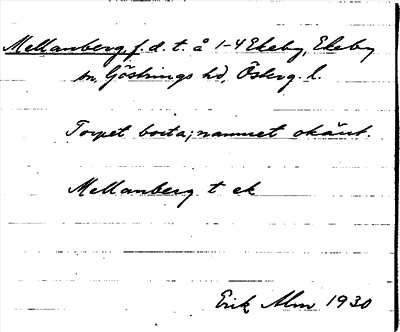 Mellanberg f. d. t. å 1-4 Ekeby, Ekeby
sn, Göstrings hd, Österg. l.
Torpet borta; namnet okänt.
Mellanberg t ek
Erik Alm 1930